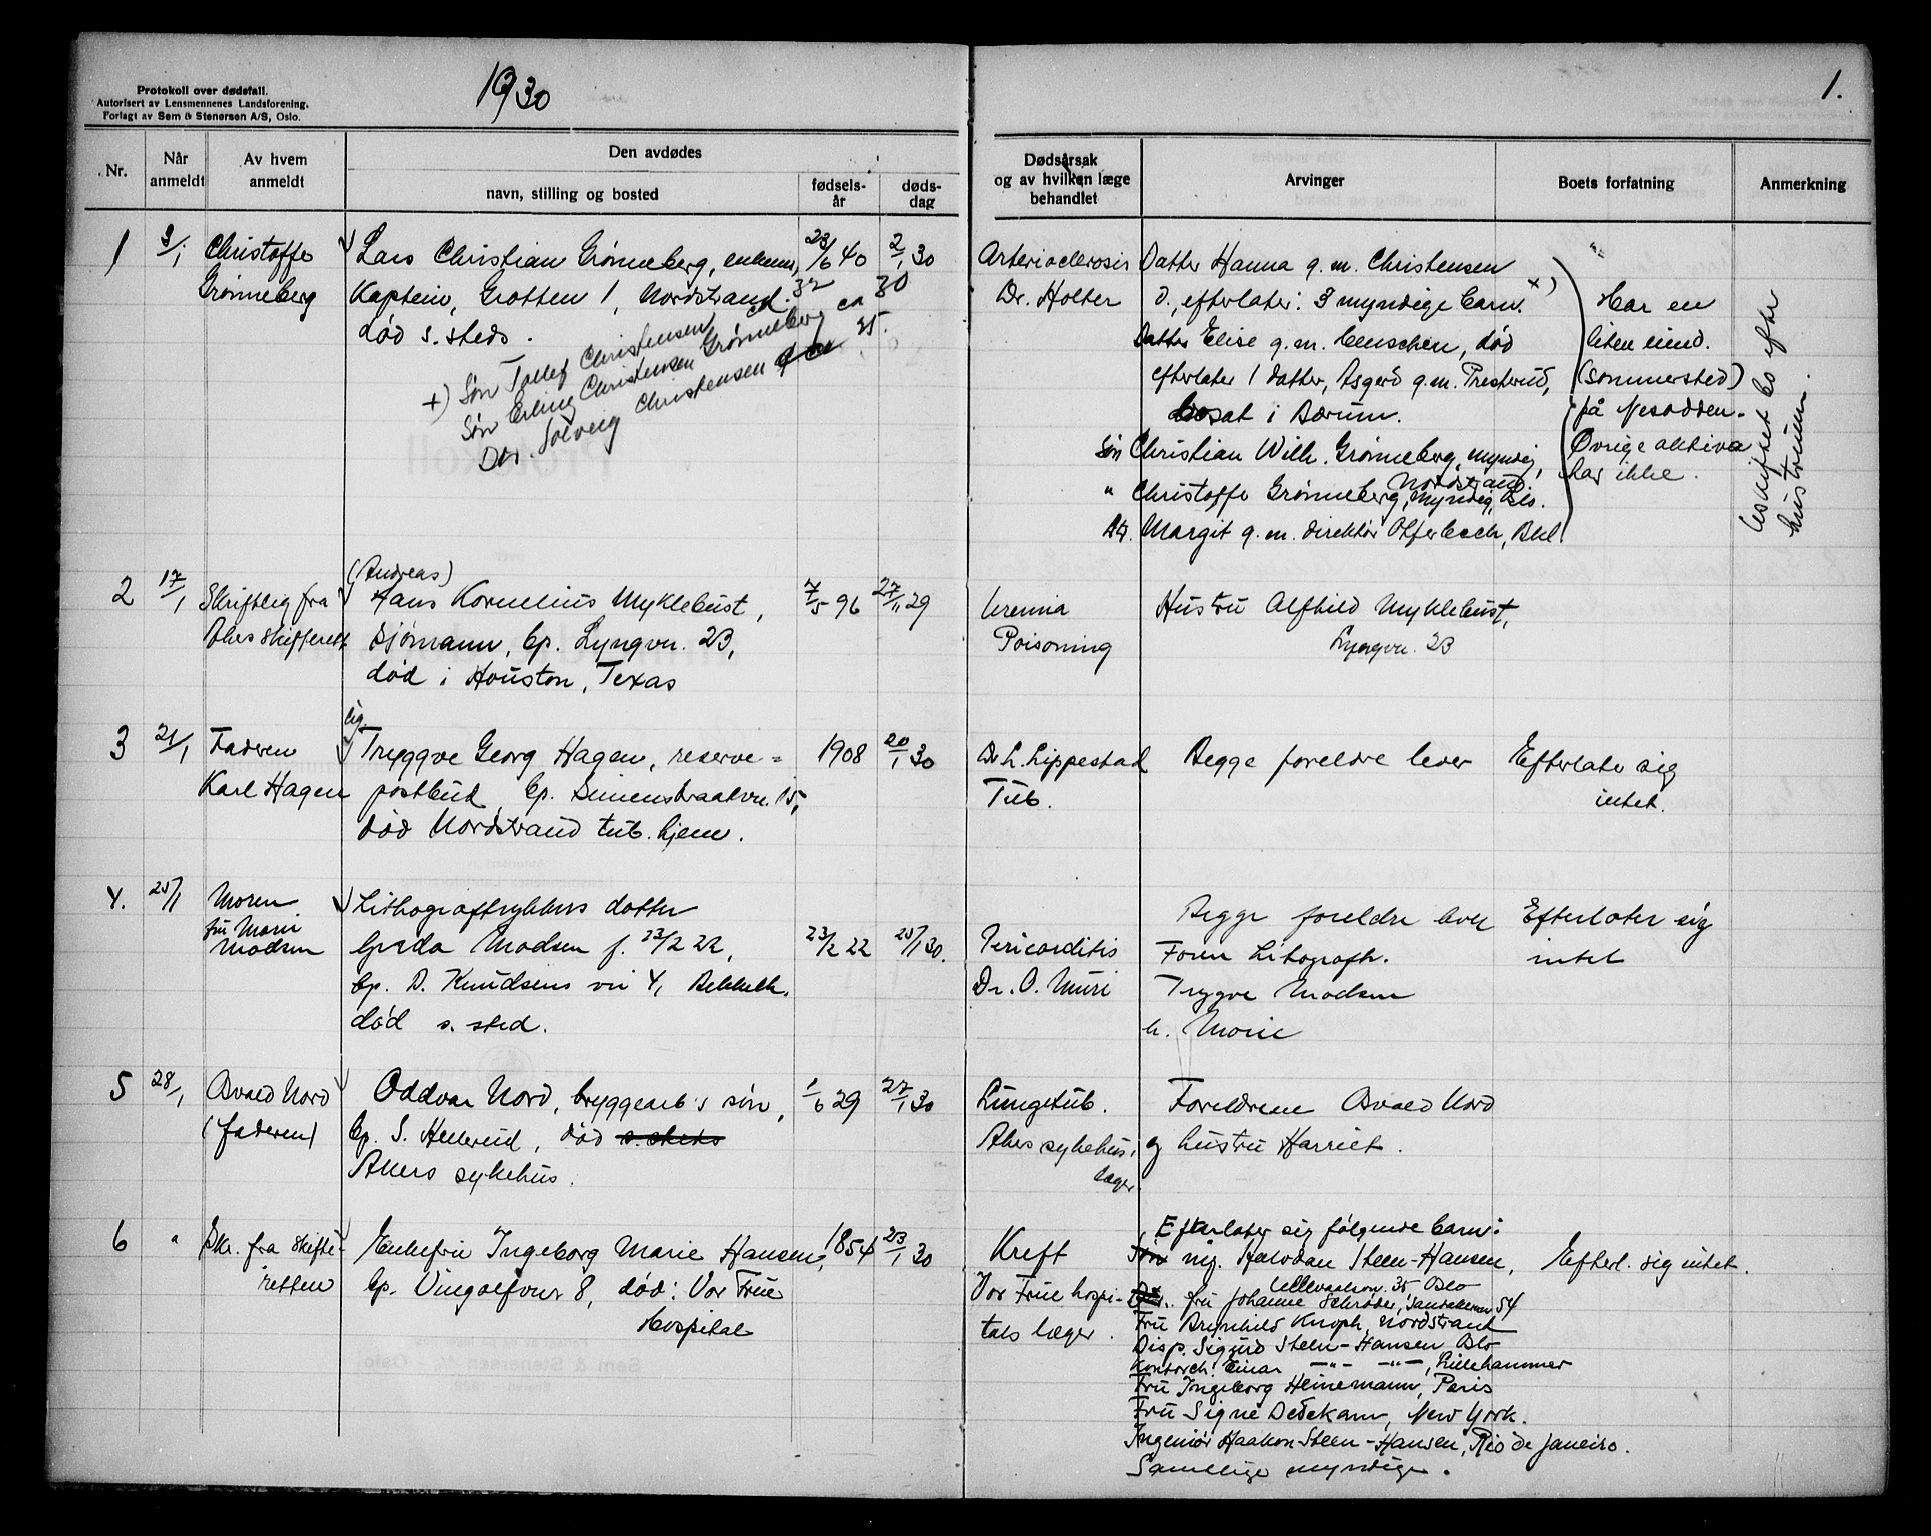 Protokoll over dødsfall.
Autorisert av Lensmennenes Landsforening.
Forlagt av Sem & Stenersen A/S, Oslo.
1930
1.
Nr.
Når anmeldt
Av hvem anmeldt
Den avdødes
navn, stilling og bosted
fødsels-år
døds-dag
Dødsårsak og av hvilken læge behandlet
Arvinger
Boets forfatning
Anmerkning
1
3/1
Christoffe
Grønneberg
Lars Christian Grønneberg, enkem.,
Kaptein, Grotten 1, Nordstrand.
død s. steds.
23/6 40
2/1 30
+) Søn Tollef Christensen 32
Søn Erling Christensen Grønneberg ca 30
Dtr. Solveig Christensen ca 25.
Arterioclerosis
Dr. Holter
Datter Hanna g.m. Christensen
d., efterlater: 3 myndige barn. +)
Datter Elise g.m. Censchen, død
efterlater 1 datter, Asgerd g.m. Presterud,
bosat i Bærum.
Søn Christian Wilh. Grønneberg, myndig,
Nordstrand
" Christoffe Grønneberg, myndig, Oslo.
Dtr. Margit g.m. direktør Offerbech, Bkl.
Har en
liten eiend.
(sommersted)
på Nesodden.
Øvrige aktiva
har ikke.
Uskiftet bo efter
hustruen.
2
17/1
Skriftlig fra
Akers skifterett
(Andreas)
Hans Kornelius Myklebust,
sjømann, bp. Lyngvn. 23,
død i Houston, Texas
7/5 96
27/11 29
Uremia
Poisoning
Hustru Alfhild Myklebust,
Lyngvn. 23
3
21/1
Faderen
Karl Hagen
ug.
Tryggve Georg Hagen, reserve=
postbud, bp. Simenstraatvn. 15,
død Nordstrand tub. hjem.
1908
20/1 30
Dr. L. Lippestad
Tub.
Begge foreldre lever
Efterlater sig
intet.
4.
25/1
Moren
fru Marie
Madsen
Lithograftrykkers datter
Gerda Madsen f. 23/2 22,
bp. D. Knudsens vei 4, Bekkelh.
død s. sted.
23/2 22
25/1 30.
Pericarditis
Dr. O. Muri
Begge foreldre lever
Faren Litograftr.
Trygve Madsen
h. Marie
Efterlater sig
intet
5
28/1
Osvald Nord
(faderen)
Oddvar Nord, bryggearb's søn,
bp. S. Hellerud, død s. steds
Akers sykehus.
1/6 29
27/1 30
Lungetub.
Akers sykehus,
læger.
Foreldrene Osvald Nord
og hustru Harriet.
6
"
Skr. fra skifte-
retten
Enkefru Ingeborg Marie Hansen,
bp. Vingolfvn 8, død: Vor Frue
Hospital
1854
23/1 30
Kreft
Vor Frue hospi-
tals læger.
Efterlater sig følgende barn:
Søn ing. Halvdan Steen-Hansen,
Ullevaalsvn. 35, Oslo
Dtr. fru Johanne Schrøder, Sandakerven 54
Fru Brynhild Knoph, Nordstrand
Disp. Sigurd Steen-Hansen Oslo
Kontorch. Einar -"- -"-, Lillehammer
Fru Ingeborg Heinemann, Paris
Fru Signe Dedekam, New York.
Ingeniør Haakon Steen-Hansen, Rio de Janeiro.
Samtlige myndige.
Efterl. sig intet.